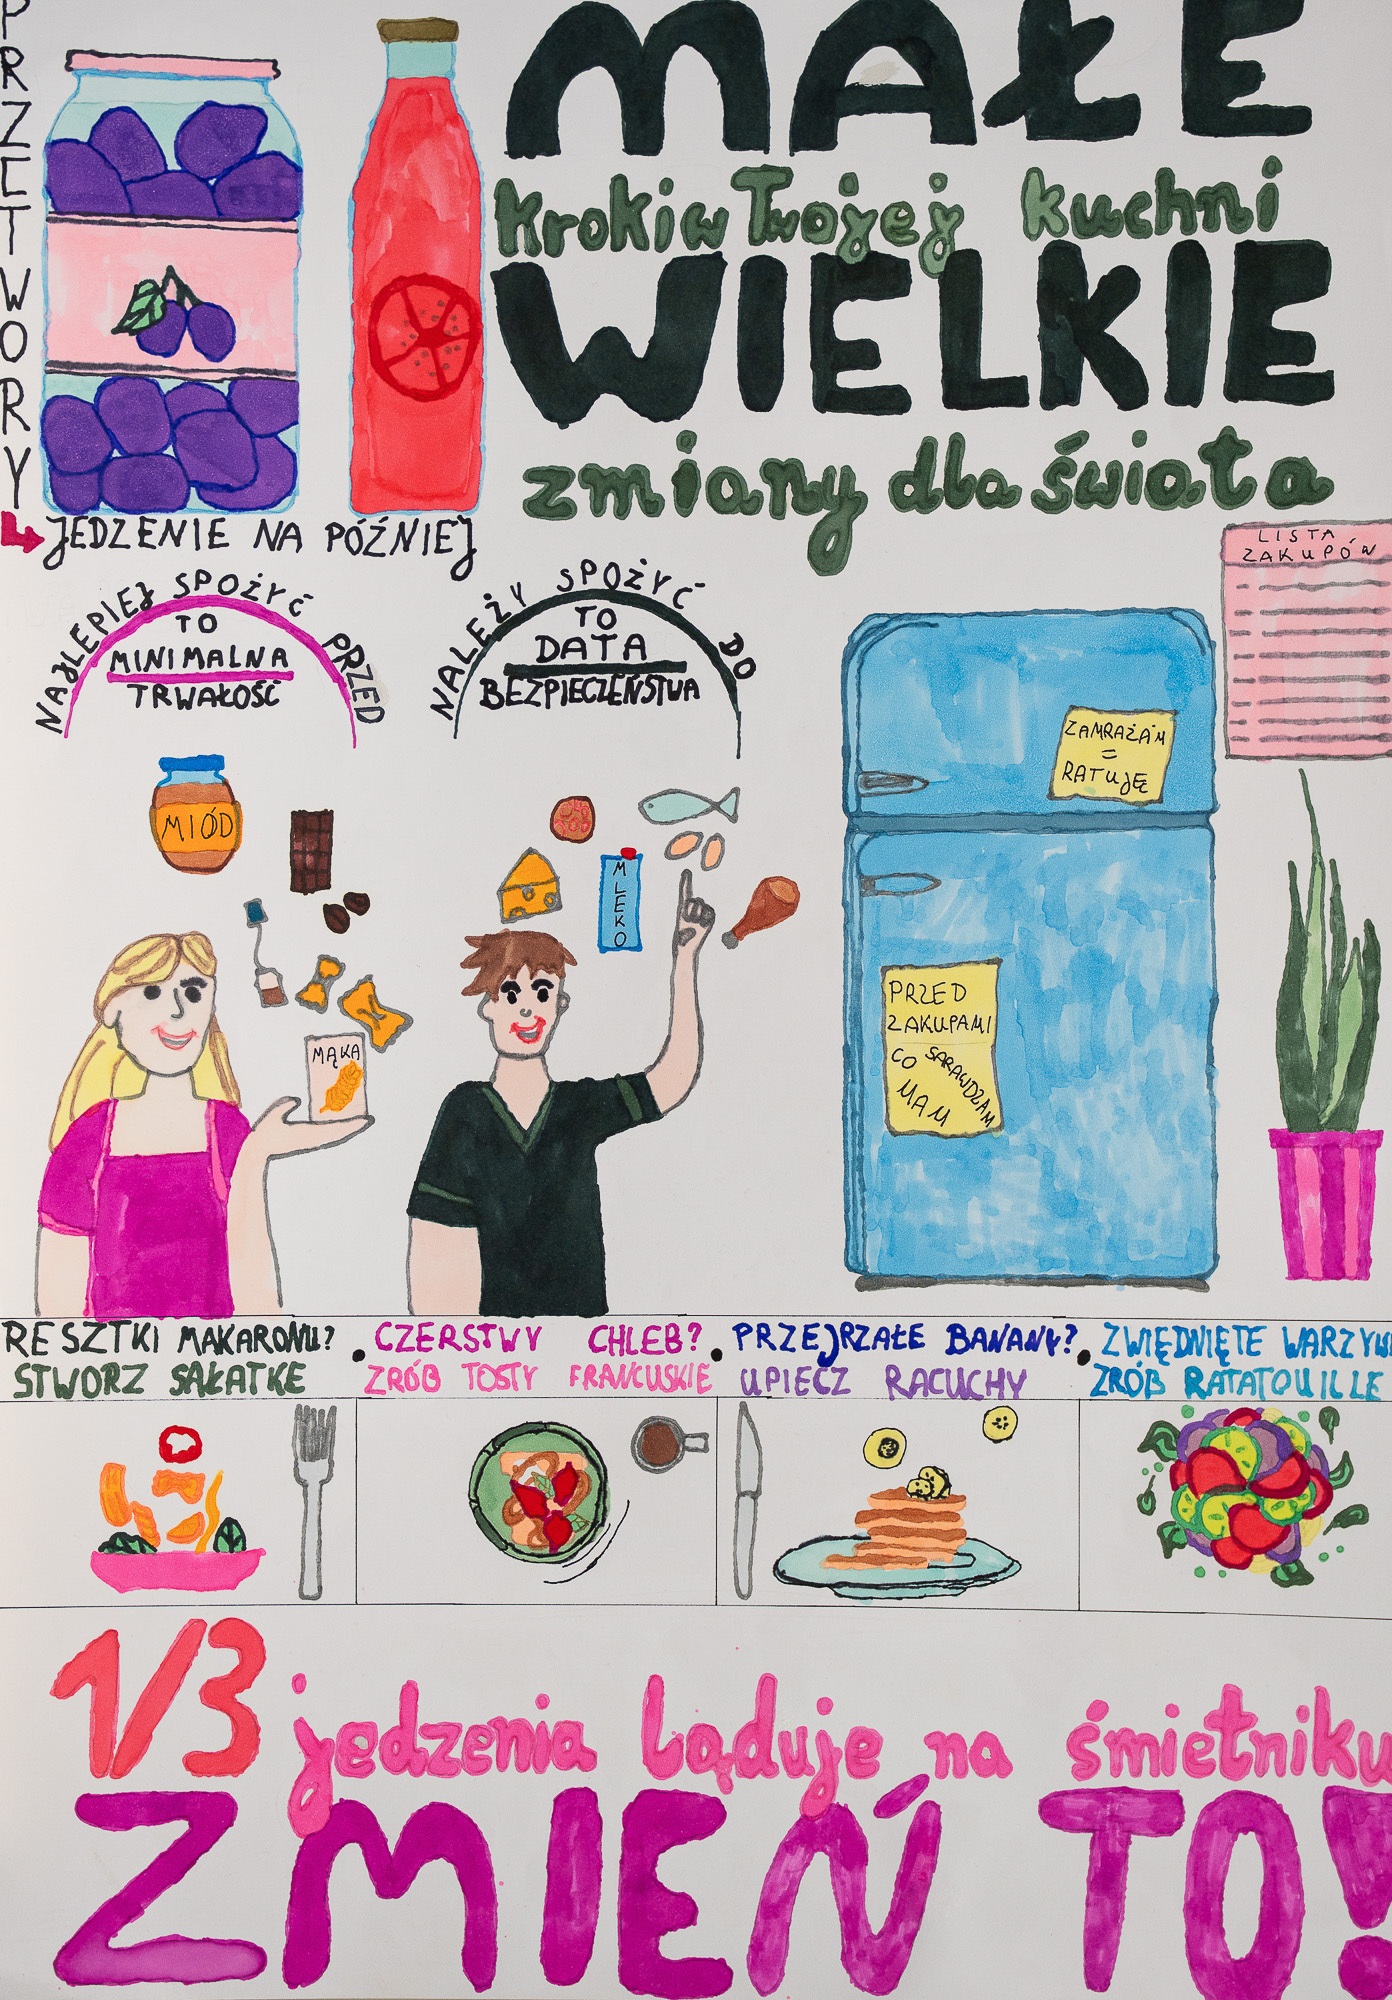 PRZETWORY
JEDZENIE NA PÓŹNIEJ
MAŁE
kroki w Twojej kuchni
WIELKIE
zmiany dla świata
NAJLEPIEJ SPOŻYĆ PRZED
TO
MINIMALNA
TRWAŁOŚĆ
NALEŻY SPOŻYĆ DO
TO
DATA
BEZPIECZEŃSTWA
LISTA
ZAKUPÓW
ZAMRAŻAM
=
RATUJĘ
MIÓD
MLEKO
MĄKA
PRZED
ZAKUPAMI
SARAWDZAM
CO
MAM
RESZTKI MAKARONU?
STWÓRZ SAŁATKE
CZERSTWY CHLEB?
ZRÓB TOSTY FRANCUSKIE
PRZEJRZAŁE BANANY?
UPIECZ RACUCHY
ZWIĘDNIĘTE WARZYW
ZRÓB RATATOUILLE
1/3 jedzenia ląduje na śmietniku
ZMIEŃ TO!